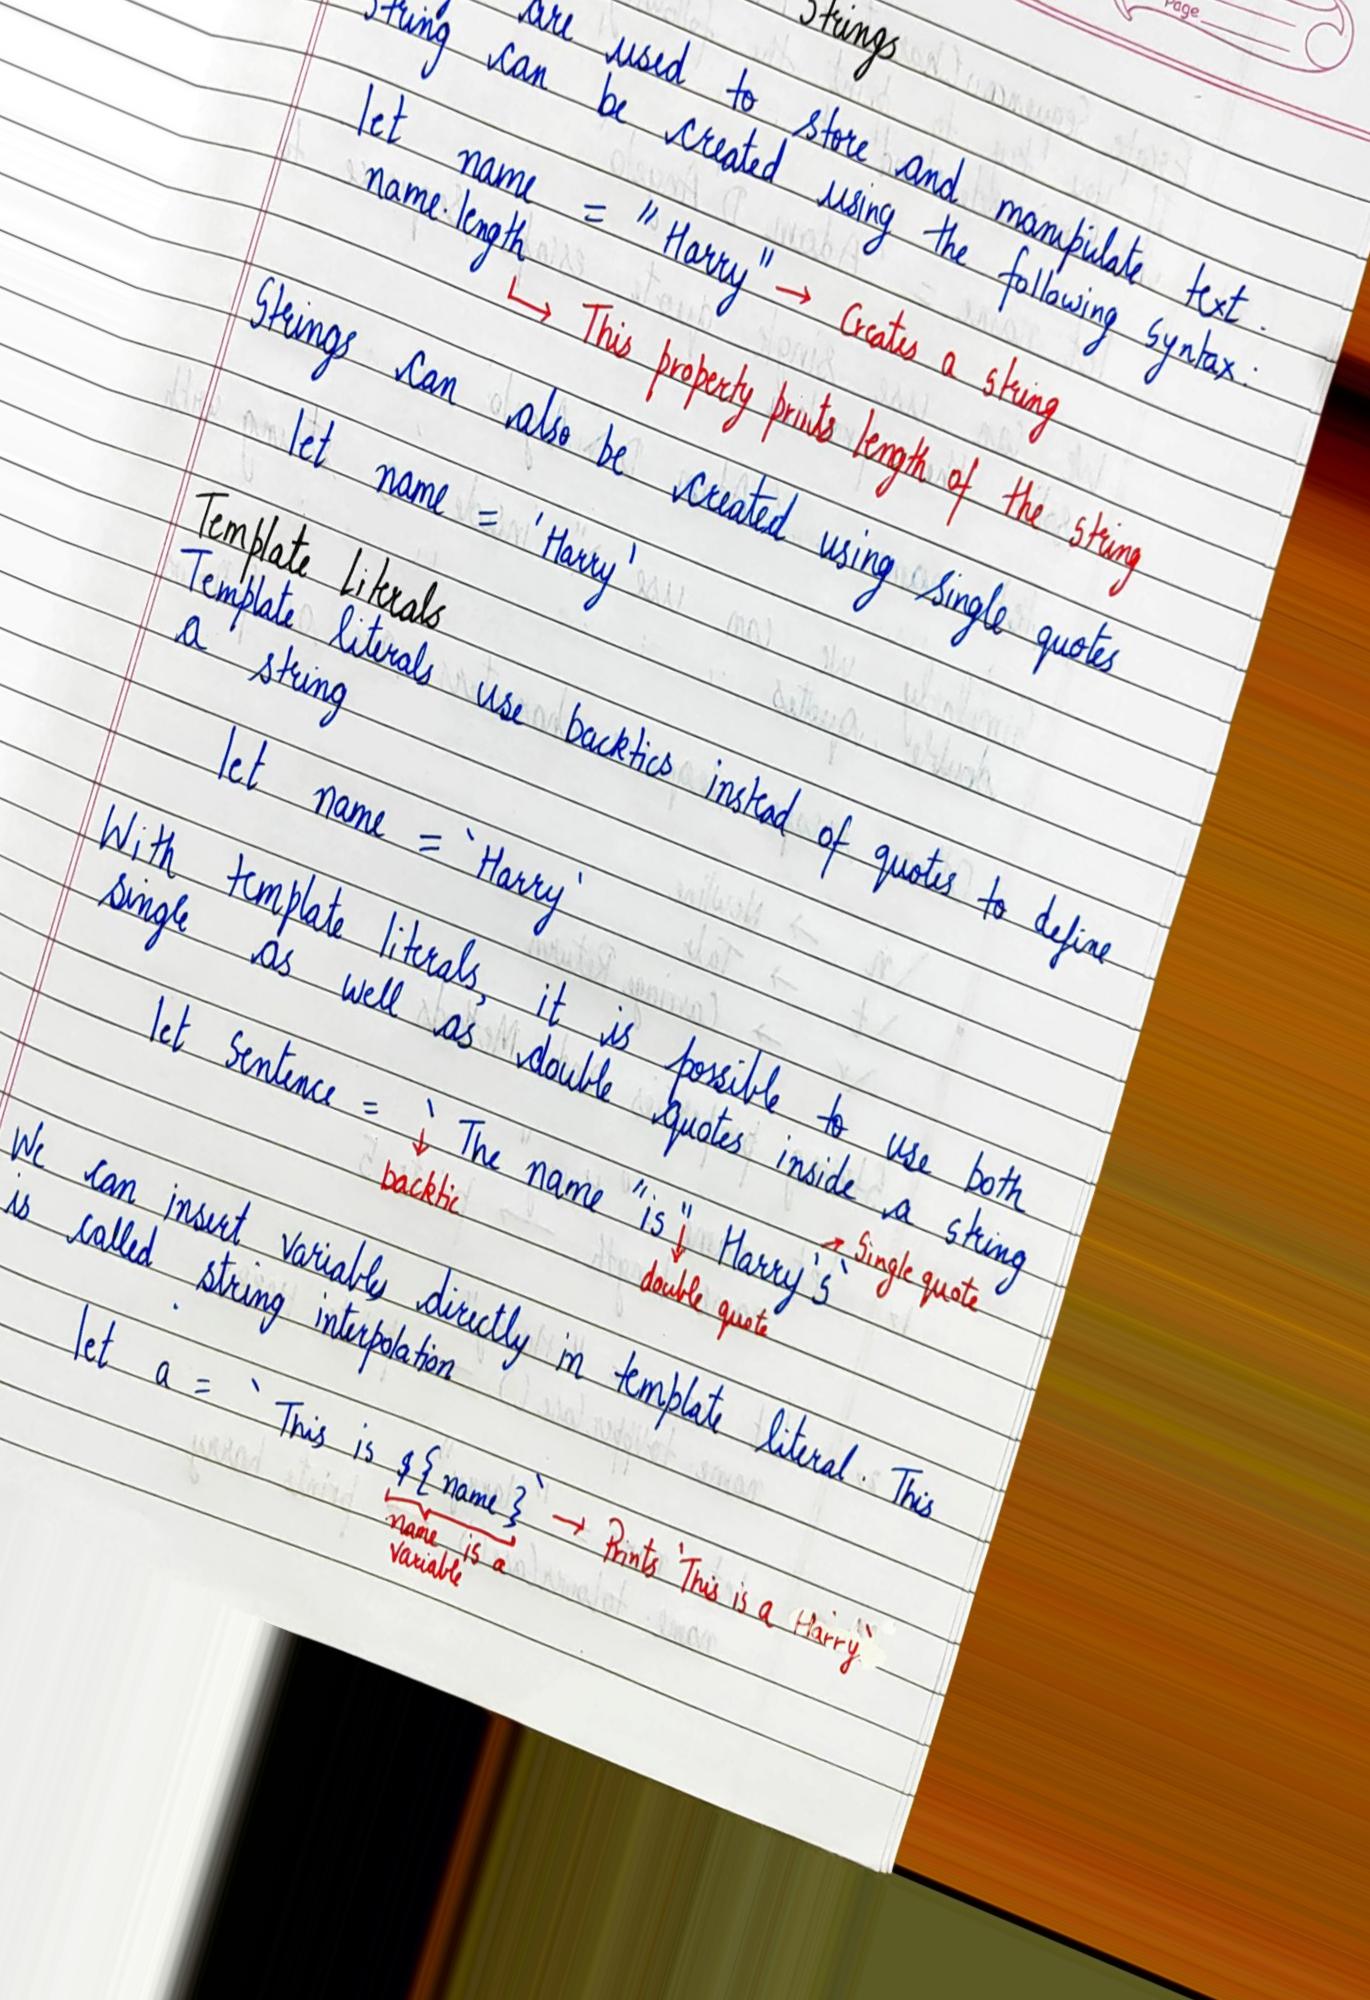 Page
Strings
are used to store and manipulate text.
String can be created using the following syntax:
let name = "Harry" → Creates a string
name.length
↳ This property prints length of the string
Strings can also be created using single quotes
let name = 'Harry'
Template Literals
Template literals use backtics instead of quotes to define
a string
let name = `Harry`
With template literals, it is possible to use both
single as well as double quotes inside a string
let sentence = ` The name "is" Harry's`
↓ backtic
↓ double quote
→ Single quote
We can insert variables directly in template literal. This
is called string interpolation
let a = `This is ${name}` → Prints 'This is a Harry'
name is a
variable